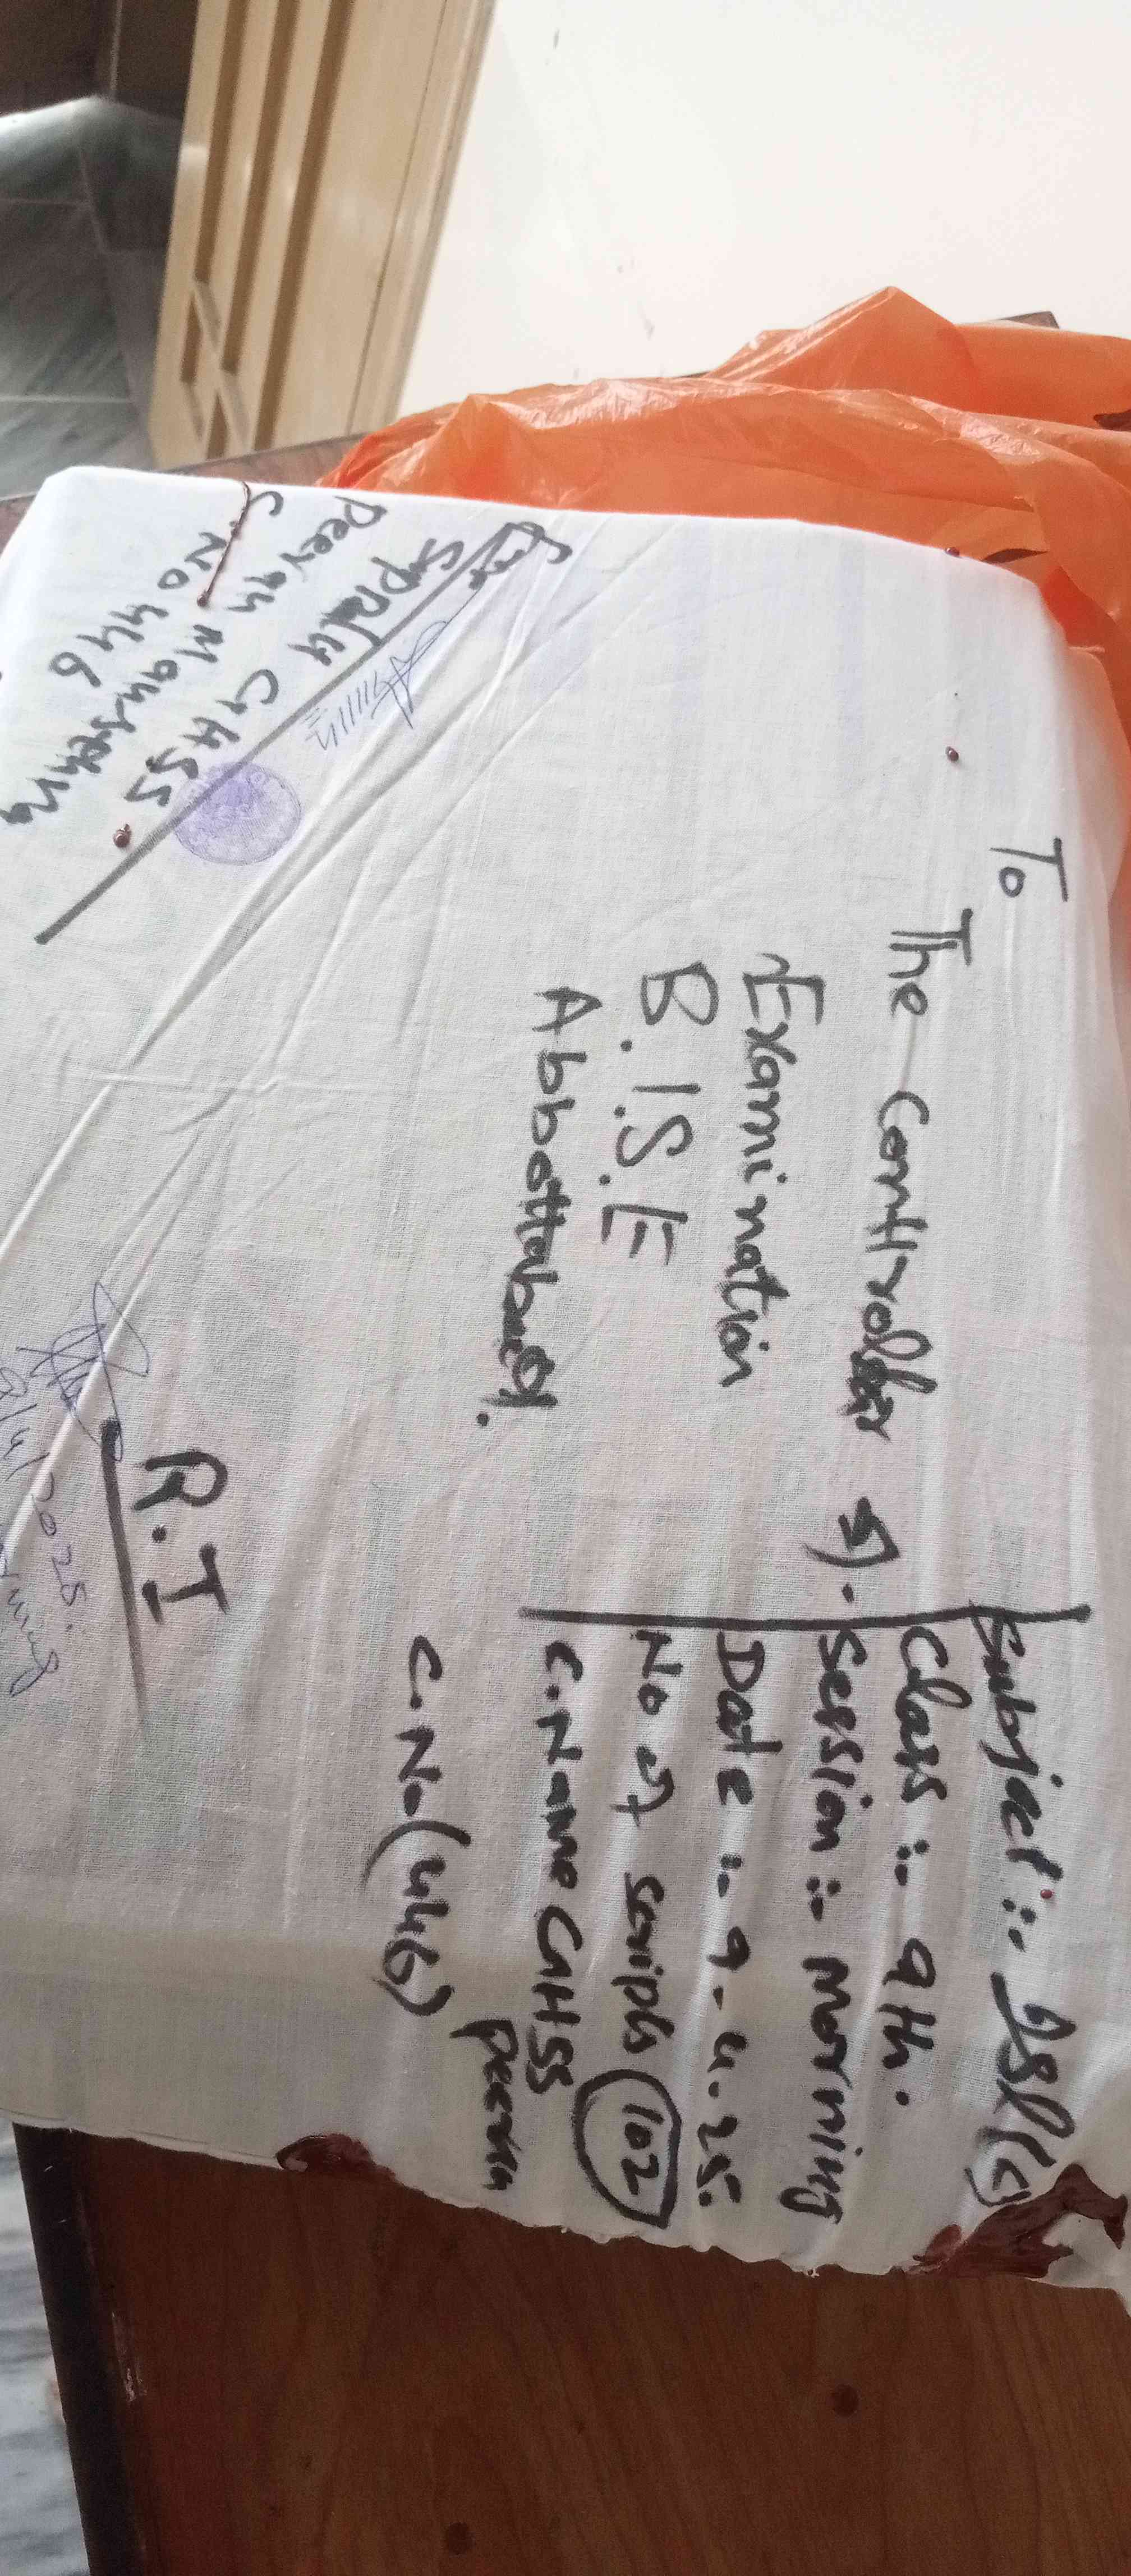 To
The Controller of.
Examination
B.I.S.E
Abbottabad.
Subject :- Isl(c)
Class :- 9th.
Session :- Morning
Date :- 9-4.25.
No of scripts (102)
C.Name GHSS
Peeran
C.No (446)
R.I
9/4/2025.
Supdt GHSS
Peeran Mansehra
C.No 446